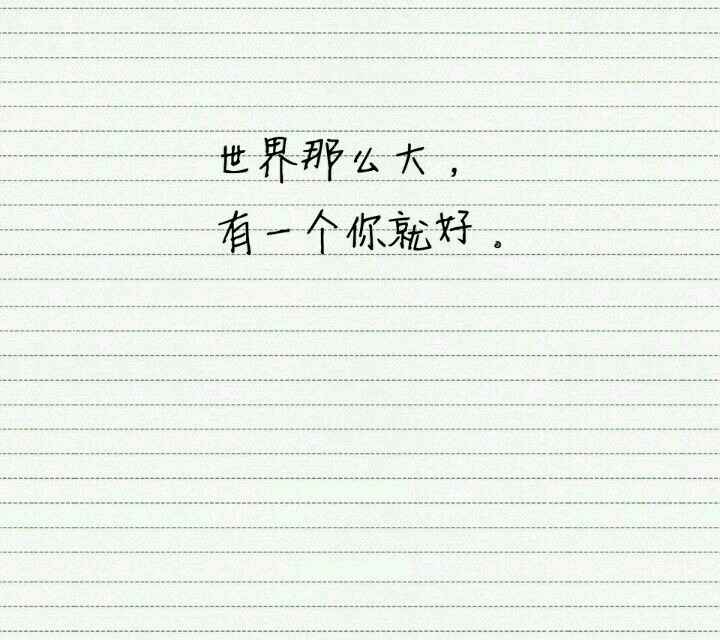 世界那么大，
有一个你就好。